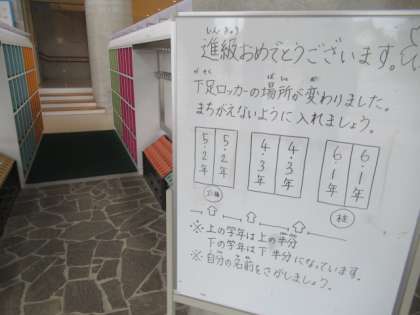 しんきゅう
進級おめでとうございます。
げそく ばしょ か
下足ロッカーの場所が変わりました。
まちがえないように入れましょう。
5・2年 5・2年 4・3年 4・3年 6・1年 6・1年
柱
※上の学年は上の半分
下の学年は下半分になっています。
※自分の名前をさがしましょう。